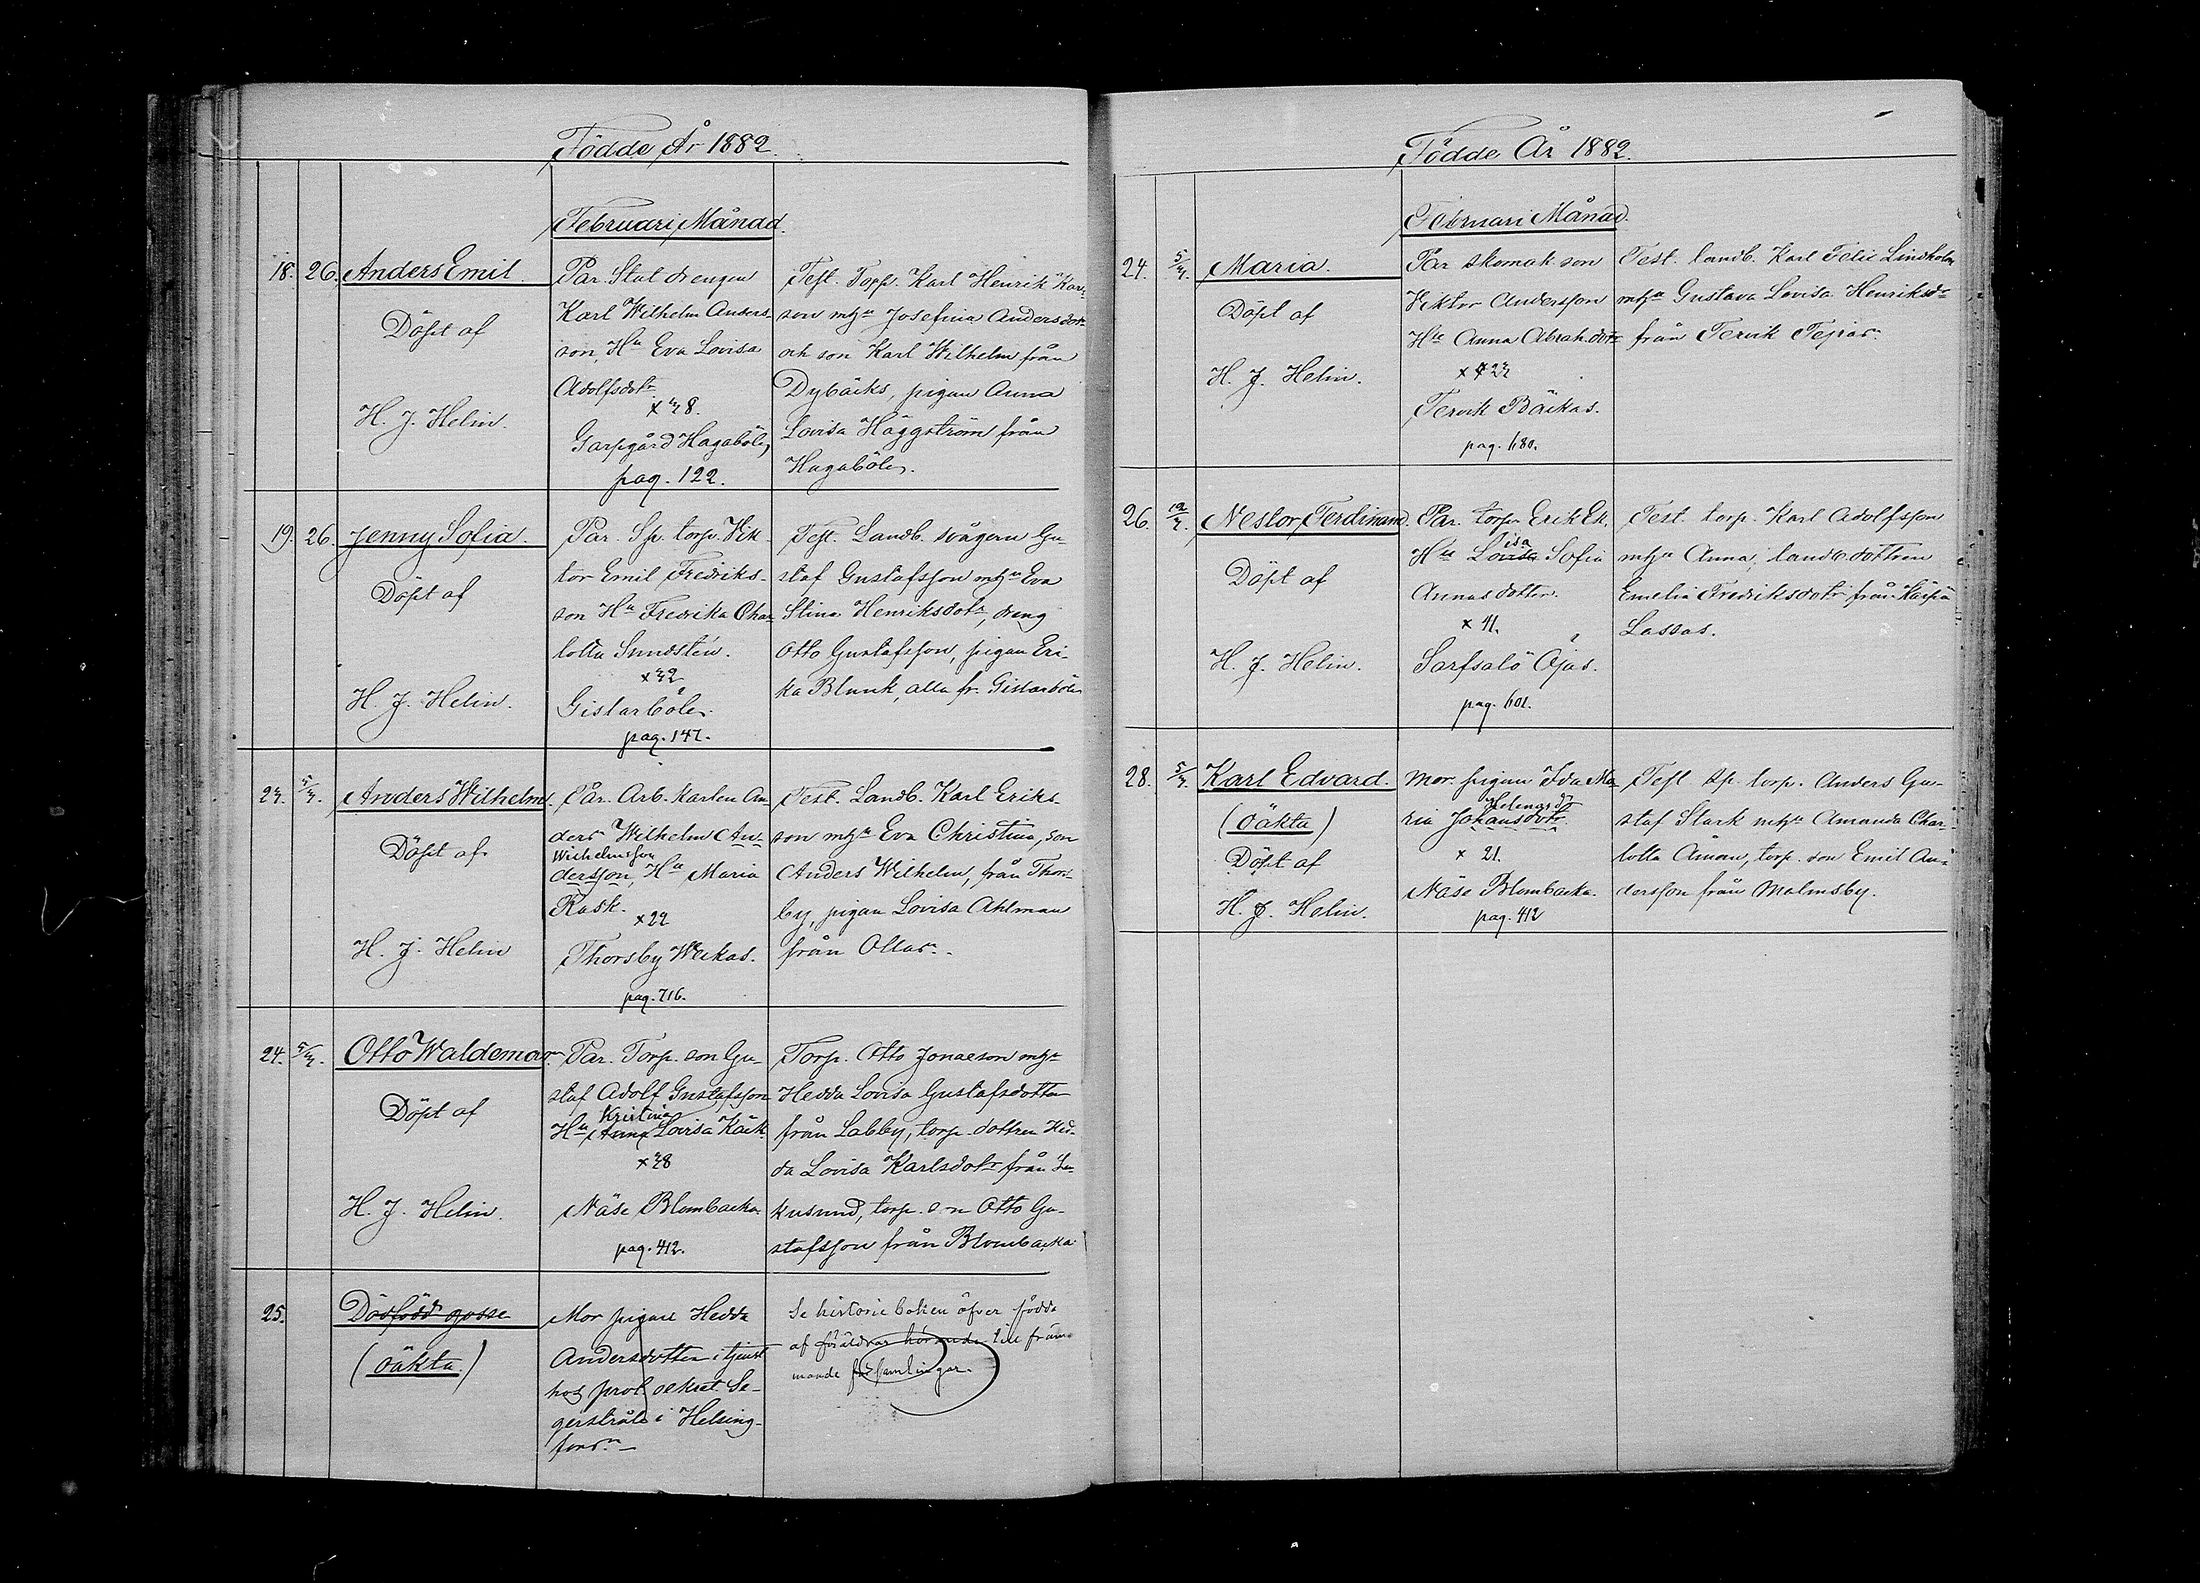 Födde År 1882.
Februari Månad.
18. 26. Anders Emil.
Döpt af
H. J. Helin.
Par. Stat drengen
Karl Wilhelm Anders-
son, Hu Eva Lovisa
Adolfsdotr
x 38.
Garpgård Hagaböle,
pag. 122.
Test. Torp. Karl Henrik Karls-
son mhu Josefina Andersdotr
och son Karl Wilhelm från
Dybäcks, pigan Anna
Lovisa Häggström från
Hagaböle.
19. 26. Jenny Sofia.
Döpt af
H. J. Helin.
Par. Sp. torp. Vik-
tor Emil Fredriks-
son Hu Fredrika Char-
lotta Sundstén.
x 32
Gislarböle.
pag. 147.
Test. Landb. svågern Gu-
staf Gustafsson mhu Eva
Stina Henriksdotr, dreng
Otto Gustafsson, pigan Eri-
ka Blunk, alla fr. Gislarböle
23. 5/3. Anders Wilhelm.
Döpt af
H. J. Helin
Par. Arb. karlen An-
ders Wilhelm An-
Wilhelmsson
dersson, Hu Maria
Rask.
x 22
Thorsby Wekas.
pag. 716.
Test. Landb. Karl Eriks-
son mhu Eva Christina, son
Anders Wilhelm, från Thors-
by, pigan Lovisa Ahlman
från Ollas.
24. 5/3. Otto Waldemar.
Döpt af
H. J. Helin.
Par. Torp. son Gu-
staf Adolf Gustafsson
Kristina
Hu Anna Lovisa Käck.
x 38
Näse Blombacka
pag. 412.
Torp. Otto Jonaeson mhu
Hedda Lovisa Gustafsdotter
från Labby, torp. dottren Hed-
da Lovisa Karlsdotr från
kusund, torp. son Otto Gu-
stafsson från Blombacka
25. Dödfödd gosse
(oäkta.)
Mor pigan Hedda
Andersdotter i tjenst
hos prot. sekret. Se-
gerstråle i Helsing-
fors.
Se historie boken öfver födda
af föräldrar hörande till främ-
mande församlingar.
Födde År 1882.
Februari Månad.
24. 5/3. Maria.
Döpt af
H. J. Helin.
Par skomak son
Viktor Andersson
Hu Anna Abrah.dotr
x 23
Tervik Bäckas.
pag. 680.
Test. landb. Karl Felix Lindholm
mhu Gustava Lovisa Henriksdr
från Tervik Tejras.
26. 12/3. Nestor Ferdinand.
Döpt af
H. J. Helin.
Par. torp. Erik Ek,
isa
Hu Lovisa Sofia
Annasdotter.
x 41.
Sarfsalö Ojas.
pag. 601.
Test. torp. Karl Adolfsson
mhu Anna, landb. dottren
Emelia Fredriksdotr från Kärpä
Lassas.
28. 5/3. Karl Edvard.
(oäkta)
Döpt af
H. J. Helin.
Mor. pigan Ida Ma-
Helenasdr
ria Johansdotr.
x 21.
Näse Blombacka.
pag. 412
Test sp. torp. Anders Gu-
staf Stark mhu Amanda Char-
lotta Åman, torp. son Emil An-
dersson från Malmsby.